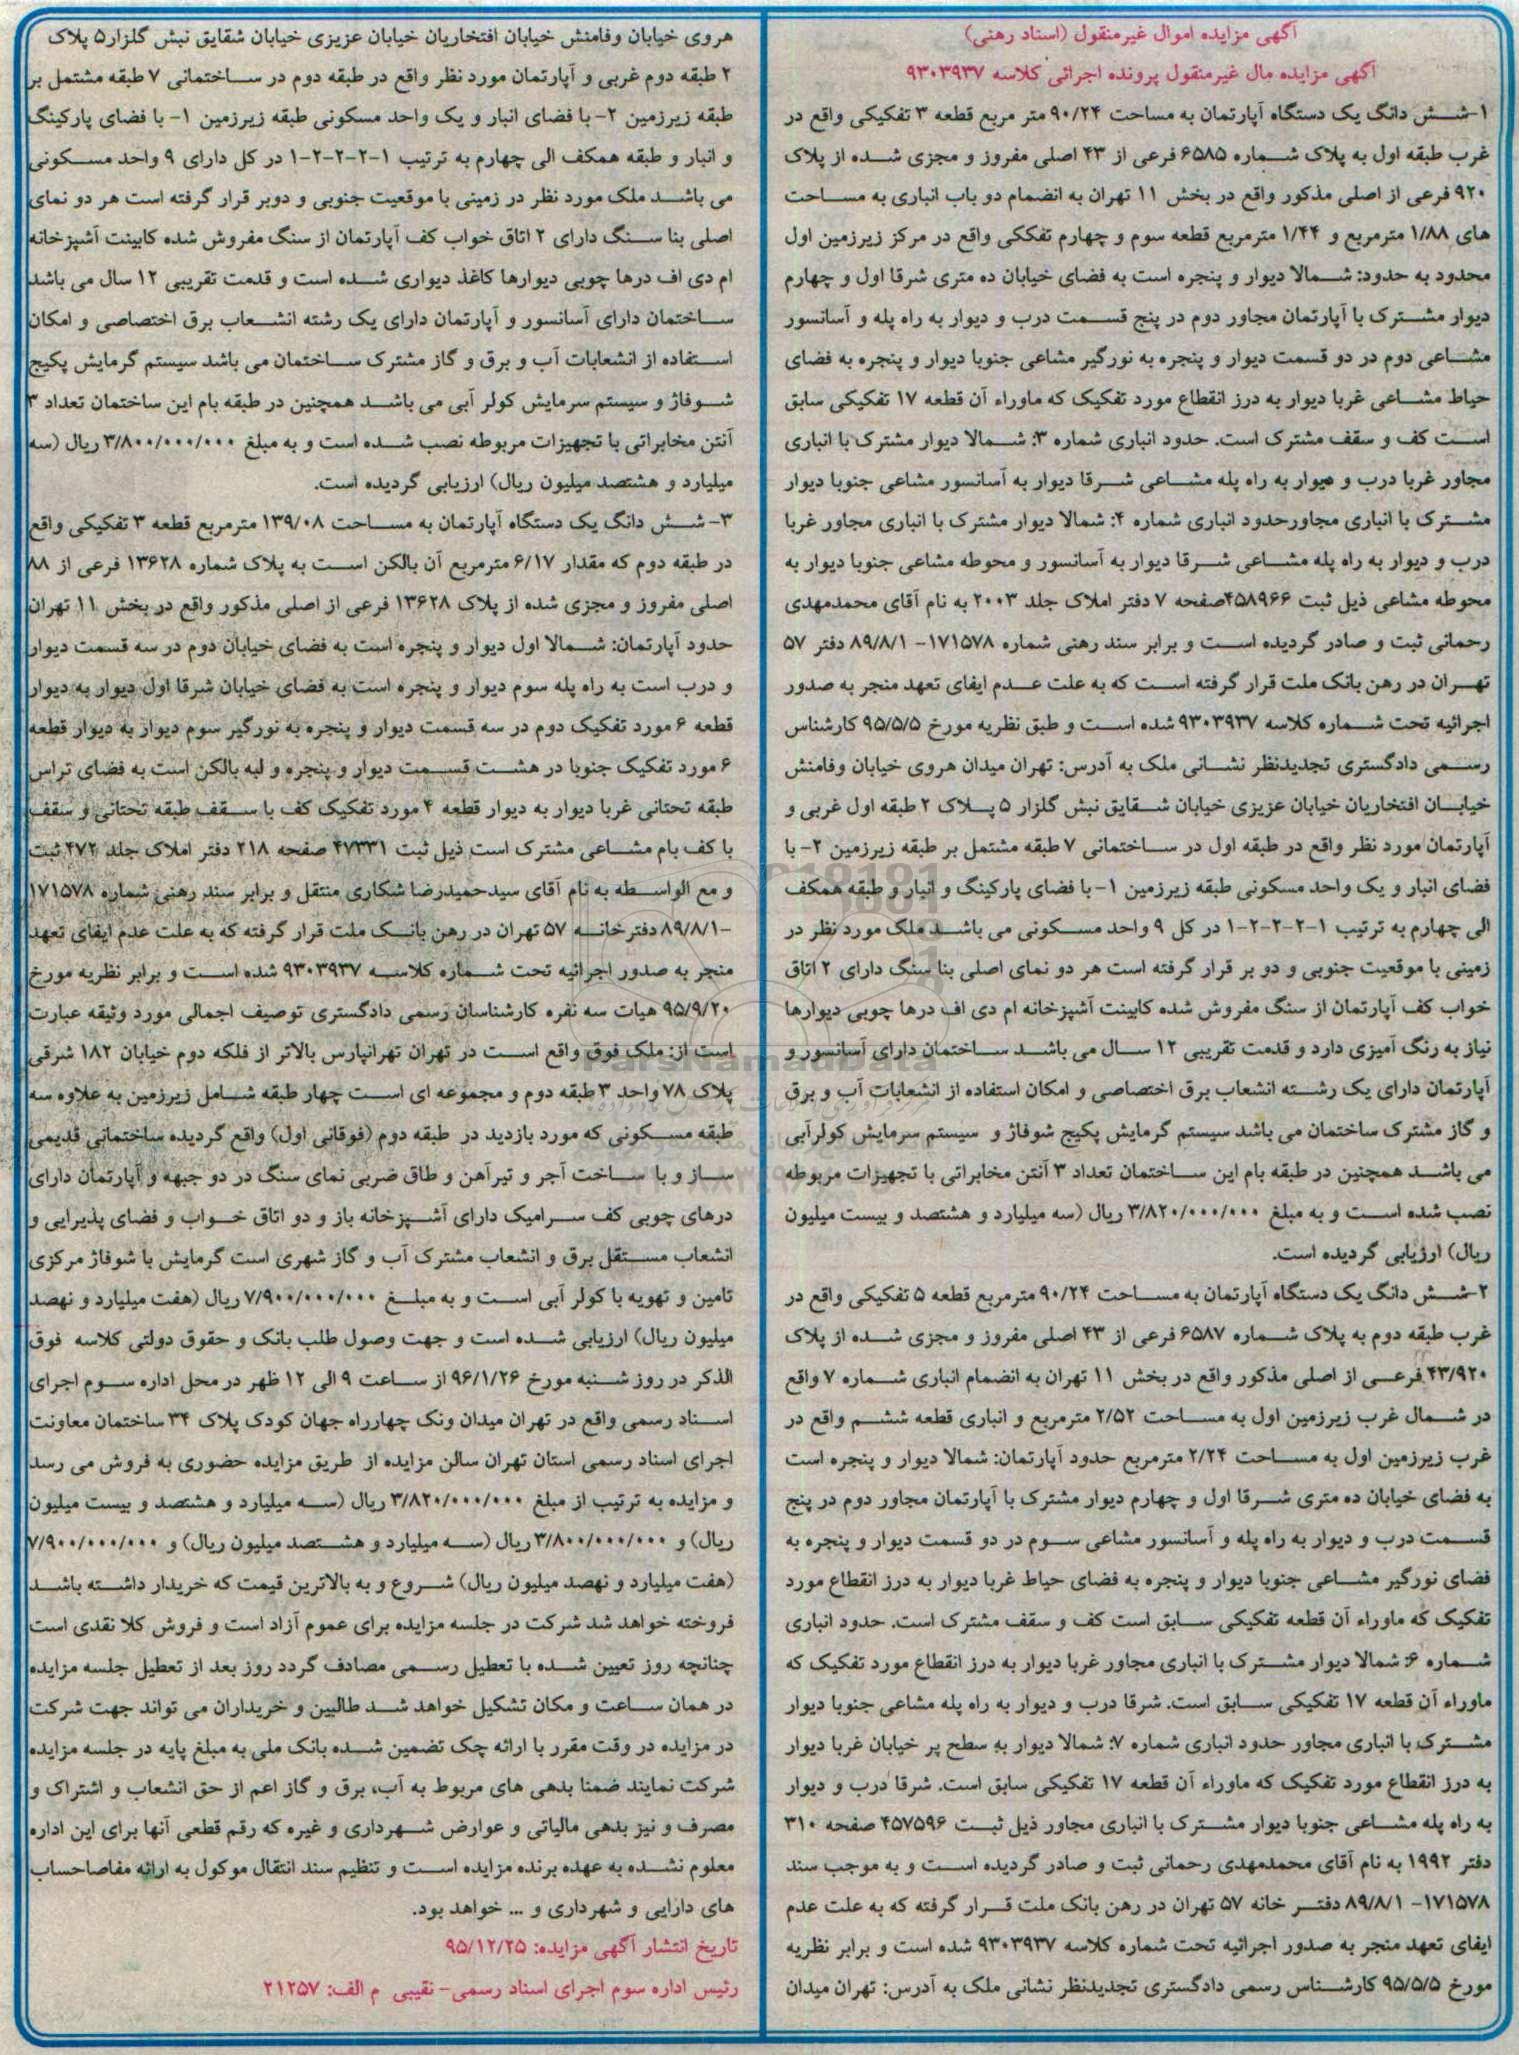 آگهی مزایده اموال غیرمنقول (اسناد رهنی)
آگهی مزایده مال غیرمنقول پرونده اجرائی کلاسه ۹۳۰۳۹۳۷
۱-شش دانگ یک دستگاه آپارتمان به مساحت ۹۰/۲۴ متر مربع قطعه ۳ تفکیکی واقع در
غرب طبقه اول به پلاک شماره ۶۵۸۵ فرعی از ۴۳ اصلی مفروز و مجزی شده از پلاک
۹۲۰ فرعی از اصلی مذکور واقع در بخش ۱۱ تهران به انضمام دو باب انباری به مساحت
های ۱/۸۸ مترمربع و ۱/۴۴ مترمربع قطعه سوم و چهارم تفککی واقع در مرکز زیرزمین اول
محدود به حدود: شمالا دیوار و پنجره است به فضای خیابان ده متری شرقا اول و چهارم
دیوار مشترک با آپارتمان مجاور دوم در پنج قسمت درب و دیوار به راه پله و آسانسور
مشاعی دوم در دو قسمت دیوار و پنجره به نورگیر مشاعی جنوبا دیوار و پنجره به فضای
حیاط مشاعی غربا دیوار به درز انقطاع مورد تفکیک که ماوراء آن قطعه ۱۷ تفکیکی سابق
است کف و سقف مشترک است. حدود انباری شماره ۳: شمالا دیوار مشترک با انباری
مجاور غربا درب و دیوار به راه پله مشاعی شرقا دیوار به آسانسور مشاعی جنوبا دیوار
مشترک با انباری مجاورحدود انباری شماره ۴: شمالا دیوار مشترک با انباری مجاور غربا
درب و دیوار به راه پله مشاعی شرقا دیوار به آسانسور و محوطه مشاعی جنوبا دیوار به
محوطه مشاعی ذیل ثبت ۴۵۸۹۶۶صفحه ۷ دفتر املاک جلد ۲۰۰۳ به نام آقای محمدمهدی
رحمانی ثبت و صادر گردیده است و برابر سند رهنی شماره ۱۷۱۵۷۸- ۸۹/۸/۱ دفتر ۵۷
تهران در رهن بانک ملت قرار گرفته است که به علت عدم ایفای تعهد منجر به صدور
اجرائیه تحت شماره کلاسه ۹۳۰۳۹۳۷ شده است و طبق نظریه مورخ ۹۵/۵/۵ کارشناس
رسمی دادگستری تجدیدنظر نشانی ملک به آدرس: تهران میدان هروی خیابان وفامنش
خیابان افتخاریان خیابان عزیزی خیابان شقایق نبش گلزار ۵ پلاک ۲ طبقه اول غربی و
آپارتمان مورد نظر واقع در طبقه اول در ساختمانی ۷ طبقه مشتمل بر طبقه زیرزمین ۲- با
فضای انبار و یک واحد مسکونی طبقه زیرزمین ۱- با فضای پارکینگ و انبار و طبقه همکف
الی چهارم به ترتیب ۱-۲-۲-۲-۱ در کل ۹ واحد مسکونی می باشد ملک مورد نظر در
زمینی با موقعیت جنوبی و دو بر قرار گرفته است هر دو نمای اصلی بنا سنگ دارای ۲ اتاق
خواب کف آپارتمان از سنگ مفروش شده کابینت آشپزخانه ام دی اف درها چوبی دیوارها
نیاز به رنگ آمیزی دارد و قدمت تقریبی ۱۲ سال می باشد ساختمان دارای آسانسور و
آپارتمان دارای یک رشته انشعاب برق اختصاصی و امکان استفاده از انشعابات آب و برق
و گاز مشترک ساختمان می باشد سیستم گرمایش پکیج شوفاژ و سیستم سرمایش کولرآبی
می باشد همچنین در طبقه بام این ساختمان تعداد ۳ آنتن مخابراتی با تجهیزات مربوطه
نصب شده است و به مبلغ ۳/۸۲۰/۰۰۰/۰۰۰ ریال (سه میلیارد و هشتصد و بیست میلیون
ریال) ارزیابی گردیده است.
۲-شش دانگ یک دستگاه آپارتمان به مساحت ۹۰/۲۴ مترمربع قطعه ۵ تفکیکی واقع در
غرب طبقه دوم به پلاک شماره ۶۵۸۷ فرعی از ۴۳ اصلی مفروز و مجزی شده از پلاک
۴۳/۹۲۰ فرعی از اصلی مذکور واقع در بخش ۱۱ تهران به انضمام انباری شماره ۷ واقع
در شمال غرب زیرزمین اول به مساحت ۲/۵۲ مترمربع و انباری قطعه ششم واقع در
غرب زیرزمین اول به مساحت ۲/۲۴ مترمربع حدود آپارتمان: شمالا دیوار و پنجره است
به فضای خیابان ده متری شرقا اول و چهارم دیوار مشترک با آپارتمان مجاور دوم در پنج
قسمت درب و دیوار به راه پله و آسانسور مشاعی سوم در دو قسمت دیوار و پنجره به
فضای نورگیر مشاعی جنوبا دیوار و پنجره به فضای حیاط غربا دیوار به درز انقطاع مورد
تفکیک که ماوراء آن قطعه تفکیکی سابق است کف و سقف مشترک است. حدود انباری
شماره ۶: شمالا دیوار مشترک با انباری مجاور غربا دیوار به درز انقطاع مورد تفکیک که
ماوراء آن قطعه ۱۷ تفکیکی سابق است. شرقا درب و دیوار به راه پله مشاعی جنوبا دیوار
مشترک با انباری مجاور حدود انباری شماره ۷: شمالا دیوار به سطح پر خیابان غربا دیوار
به درز انقطاع مورد تفکیک که ماوراء آن قطعه ۱۷ تفکیکی سابق است. شرقا درب و دیوار
به راه پله مشاعی جنوبا دیوار مشترک با انباری مجاور ذیل ثبت ۴۵۷۵۹۶ صفحه ۳۱۰
دفتر ۱۹۹۲ به نام آقای محمدمهدی رحمانی ثبت و صادر گردیده است و به موجب سند
۱۷۱۵۷۸- ۸۹/۸/۱ دفتر خانه ۵۷ تهران در رهن بانک ملت قرار گرفته که به علت عدم
ایفای تعهد منجر به صدور اجرائیه تحت شماره کلاسه ۹۳۰۳۹۳۷ شده است و برابر نظریه
مورخ ۹۵/۵/۵ کارشناس رسمی دادگستری تجدیدنظر نشانی ملک به آدرس: تهران میدان
هروی خیابان وفامنش خیابان افتخاریان خیابان عزیزی خیابان شقایق نبش گلزار۵ پلاک
۲ طبقه دوم غربی و آپارتمان مورد نظر واقع در طبقه دوم در ساختمانی ۷ طبقه مشتمل بر
طبقه زیرزمین ۲- با فضای انبار و یک واحد مسکونی طبقه زیرزمین ۱- با فضای پارکینگ
و انبار و طبقه همکف الی چهارم به ترتیب ۱-۲-۲-۲-۱ در کل دارای ۹ واحد مسکونی
می باشد ملک مورد نظر در زمینی با موقعیت جنوبی و دوبر قرار گرفته است هر دو نمای
اصلی بنا سنگ دارای ۲ اتاق خواب کف آپارتمان از سنگ مفروش شده کابینت آشپزخانه
ام دی اف درها چوبی دیوارها کاغذ دیواری شده است و قدمت تقریبی ۱۲ سال می باشد
ساختمان دارای آسانسور و آپارتمان دارای یک رشته انشعاب برق اختصاصی و امکان
استفاده از انشعابات آب و برق و گاز مشترک ساختمان می باشد سیستم گرمایش پکیج
شوفاژ و سیستم سرمایش کولر آبی می باشد همچنین در طبقه بام این ساختمان تعداد ۳
آنتن مخابراتی با تجهیزات مربوطه نصب شده است و به مبلغ ۳/۸۰۰/۰۰۰/۰۰۰ ریال (سه
میلیارد و هشتصد میلیون ریال) ارزیابی گردیده است.
۳- شش دانگ یک دستگاه آپارتمان به مساحت ۱۳۹/۰۸ مترمربع قطعه ۳ تفکیکی واقع
در طبقه دوم که مقدار ۶/۱۷ مترمربع آن بالکن است به پلاک شماره ۱۳۶۲۸ فرعی از ۸۸
اصلی مفروز و مجزی شده از پلاک ۱۳۶۲۸ فرعی از اصلی مذکور واقع در بخش ۱۱ تهران
حدود آپارتمان: شمالا اول دیوار و پنجره است به فضای خیابان دوم در سه قسمت دیوار
و درب است به راه پله سوم دیوار و پنجره است به فضای خیابان شرقا اول دیوار به دیوار
قطعه ۶ مورد تفکیک دوم در سه قسمت دیوار و پنجره به نورگیر سوم دیوار به دیوار قطعه
۶ مورد تفکیک جنوبا در هشت قسمت دیوار و پنجره و لبه بالکن است به فضای تراس
طبقه تحتانی غربا دیوار به دیوار قطعه ۴ مورد تفکیک کف با سقف طبقه تحتانی و سقف
با کف بام مشاعی مشترک است ذیل ثبت ۴۷۳۳۱ صفحه ۲۱۸ دفتر املاک جلد ۴۷۲ ثبت
و مع الواسطه به نام آقای سیدحمیدرضا شکاری منتقل و برابر سند رهنی شماره ۱۷۱۵۷۸
-۸۹/۸/۱ دفترخانه ۵۷ تهران در رهن بانک ملت قرار گرفته که به علت عدم ایفای تعهد
منجر به صدور اجرائیه تحت شماره کلاسه ۹۳۰۳۹۳۷ شده است و برابر نظریه مورخ
۹۵/۹/۲۰ هیات سه نفره کارشناسان رسمی دادگستری توصیف اجمالی مورد وثیقه عبارت
است از: ملک فوق واقع است در تهران تهرانپارس بالاتر از فلکه دوم خیابان ۱۸۲ شرقی
پلاک ۷۸ واحد ۳ طبقه دوم و مجموعه ای است چهار طبقه شامل زیرزمین به علاوه سه
طبقه مسکونی که مورد بازدید در طبقه دوم (فوقانی اول) واقع گردیده ساختمانی قدیمی
ساز و با ساخت آجر و تیرآهن و طاق ضربی نمای سنگ در دو جبهه و آپارتمان دارای
درهای چوبی کف سرامیک دارای آشپزخانه باز و دو اتاق خواب و فضای پذیرایی و
انشعاب مستقل برق و انشعاب مشترک آب و گاز شهری است گرمایش با شوفاژ مرکزی
تامین و تهویه با کولر آبی است و به مبلغ ۷/۹۰۰/۰۰۰/۰۰۰ ریال (هفت میلیارد و نهصد
میلیون ریال) ارزیابی شده است و جهت وصول طلب بانک و حقوق دولتی کلاسه فوق
الذکر در روز شنبه مورخ ۹۶/۱/۲۶ از ساعت ۹ الی ۱۲ ظهر در محل اداره سوم اجرای
اسناد رسمی واقع در تهران میدان ونک چهارراه جهان کودک پلاک ۳۴ ساختمان معاونت
اجرای اسناد رسمی استان تهران سالن مزایده از طریق مزایده حضوری به فروش می رسد
و مزایده به ترتیب از مبلغ ۳/۸۲۰/۰۰۰/۰۰۰ ریال (سه میلیارد و هشتصد و بیست میلیون
ریال) و ۳/۸۰۰/۰۰۰/۰۰۰ ریال (سه میلیارد و هشتصد میلیون ریال) و ۷/۹۰۰/۰۰۰/۰۰۰
(هفت میلیارد و نهصد میلیون ریال) شروع و به بالاترین قیمت که خریدار داشته باشد
فروخته خواهد شد شرکت در جلسه مزایده برای عموم آزاد است و فروش کلا نقدی است
چنانچه روز تعیین شده با تعطیل رسمی مصادف گردد روز بعد از تعطیل جلسه مزایده
در همان ساعت و مکان تشکیل خواهد شد طالبین و خریداران می تواند جهت شرکت
در مزایده در وقت مقرر با ارائه چک تضمین شده بانک ملی به مبلغ پایه در جلسه مزایده
شرکت نمایند ضمنا بدهی های مربوط به آب، برق و گاز اعم از حق انشعاب و اشتراک و
مصرف و نیز بدهی مالیاتی و عوارض شهرداری و غیره که رقم قطعی آنها برای این اداره
معلوم نشده به عهده برنده مزایده است و تنظیم سند انتقال موکول به ارائه مفاصاحساب
های دارایی و شهرداری و ... خواهد بود.
تاریخ انتشار آگهی مزایده: ۹۵/۱۲/۲۵
رئیس اداره سوم اجرای اسناد رسمی- نقیبی م الف: ۲۱۲۵۷
ParsNamadData